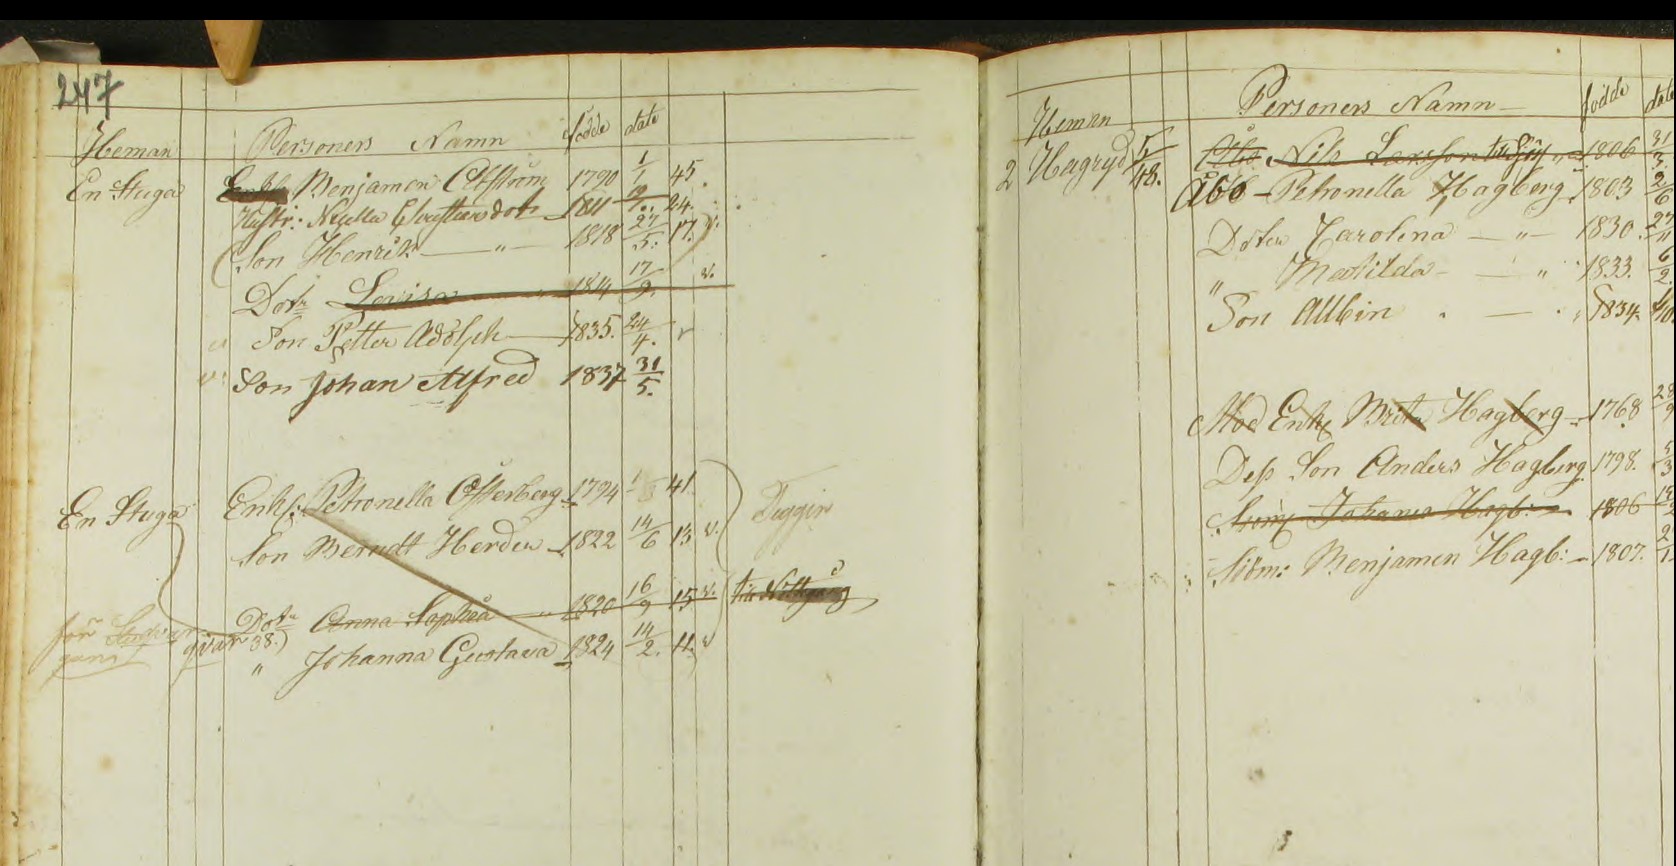 247
Heman Personers Namn födde dato
En Stuga Benjamen 1790 1/1 45.
Hustr: 1811 24.
Son Henrik — " — 1818 27/5. 17. v.
Dotr Lovisa 1814 17/9. v.
Son Petter Adolph — 1835. 24/4. v
v. Son Johan Alfred 1837 31/5.
En Stuga Enk: Petronella Österberg 1794 1 41.
Son Berndt Herden 1822 14/6 13 v. Tiggin
Dotr Anna Sophia " 1820 16/9 15 v. till
qvar 38.)
" Johanna Gustava 1824 14/2. 11. v
Hemen Personers Namn födde dato
2 Hagryd 5/48. Åbo Nils Larsson 1806 31/3.
Åbo — Petronella Hagberg 1803 2/6
Doter Carolina — " — 1830. 27/11
" Mathilda — — " 1833. 6/2.
Son Allbin . — . " 1834. /10.
Mod Enk Brita Hagberg — 1768 28/9
Dess Son Anders Hagberg 1798. 5/3
Johanes Hagb: — 1806
Benjamen Hagb: — 1807. 2/1